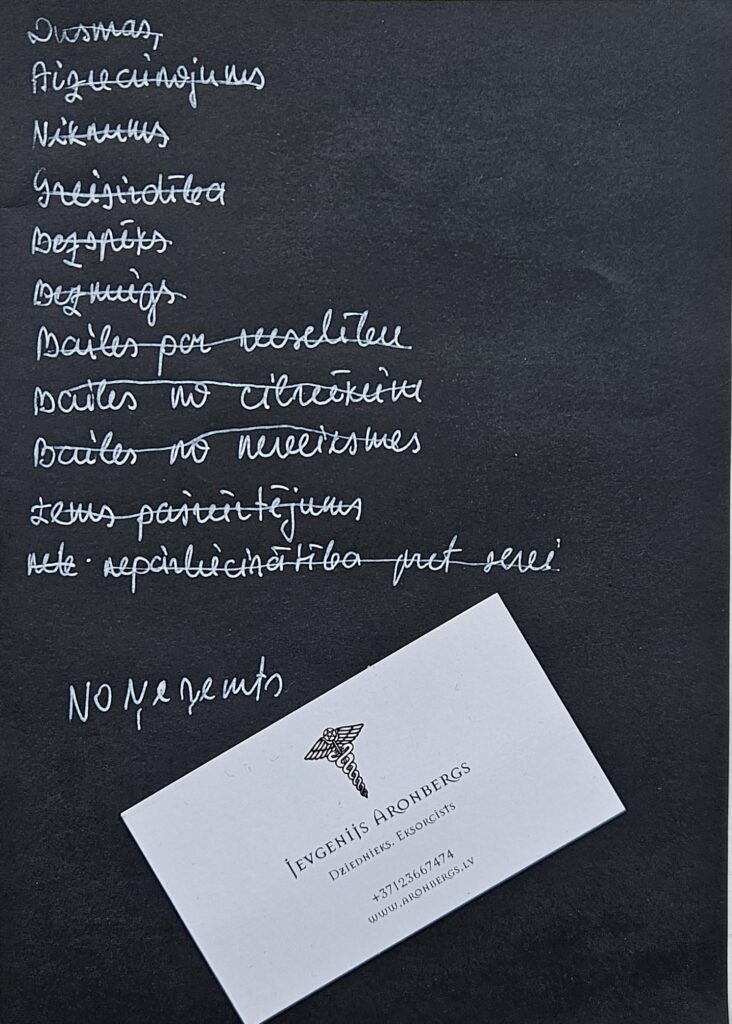 Dusmas,
Aizvainojums
Niknums
Greisirdība
Bezspēks
Bezmiegs
Bailes par veselību
Bailes no cilvēkiem
Bailes no neveiksmes
zems pašvērtējums
nepārliecinātība pret sevi
NOŅEZEMTS
JEVGENIJS ARONBERGS
DZIEDNIEKS. EKSORCISTS
+37123667474
WWW.ARONBERGS.LV